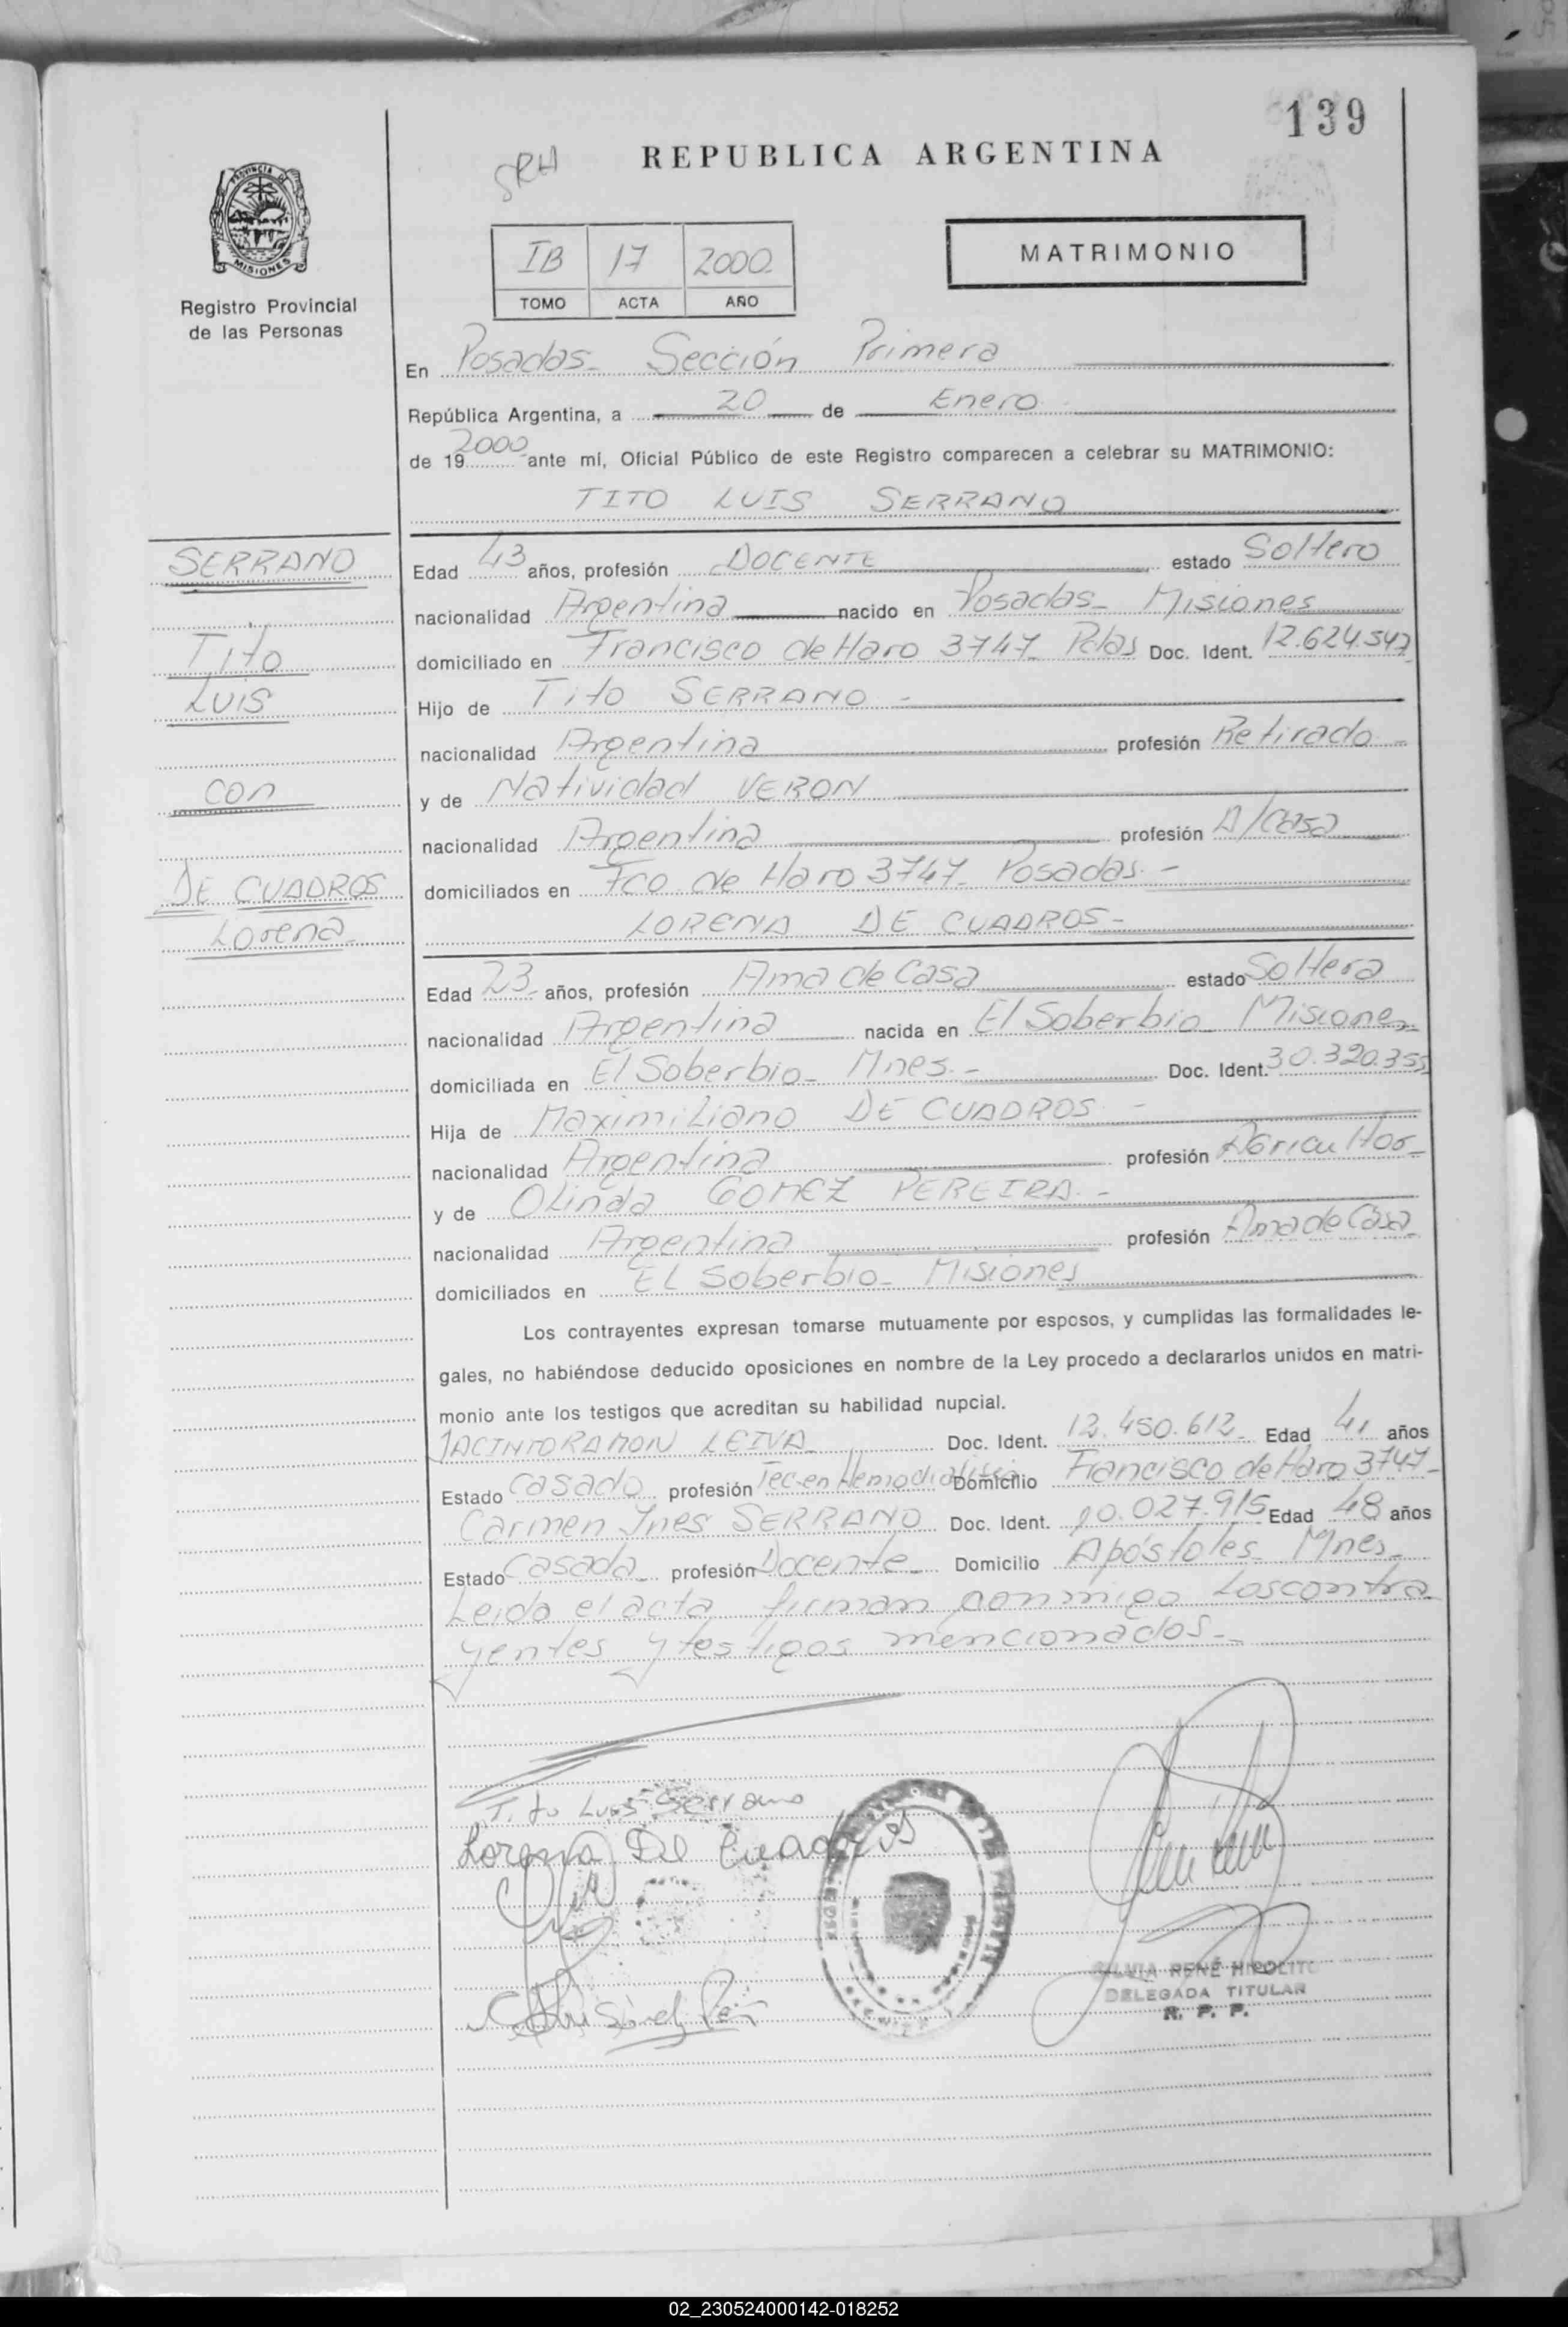 139
REPUBLICA ARGENTINA
SRH
PROVINCIA DE
MISIONES
Registro Provincial
de las Personas
IB 17 2000
TOMO ACTA AÑO
MATRIMONIO
En Posadas- Sección Primera
República Argentina, a 20 de Enero
de 19 2000 ante mí, Oficial Público de este Registro comparecen a celebrar su MATRIMONIO:
TITO LUIS SERRANO
SERRANO
Tito
Luis
con
DE CUADROS
Lorena
Edad 43 años, profesión DOCENTE estado Soltero
nacionalidad Argentina nacido en Posadas- Misiones
domiciliado en Francisco de Haro 3747 Pdas Doc. Ident. 12.624.547
Hijo de Tito SERRANO -
nacionalidad Argentina profesión Retirado -
y de Natividad VERON
nacionalidad Argentina profesión A/Casa
domiciliados en Fco de Haro 3747- Posadas. -
LORENA DE CUADROS-
Edad 23- años, profesión Ama de Casa estado Soltera
nacionalidad Argentina nacida en El Soberbio- Misiones
domiciliada en El Soberbio- Mnes. - Doc. Ident. 30.320.355
Hija de Maximiliano DE CUADROS -
nacionalidad Argentina profesión Agricultor-
y de Olinda GOMEZ PEREIRA. -
nacionalidad Argentina profesión Ama de Casa
domiciliados en EL Soberbio- Misiones
Los contrayentes expresan tomarse mutuamente por esposos, y cumplidas las formalidades le-
gales, no habiéndose deducido oposiciones en nombre de la Ley procedo a declararlos unidos en matri-
monio ante los testigos que acreditan su habilidad nupcial.
JACINTO RAMON LEIVA Doc. Ident. 12.450.612- Edad 41 años
Estado Casado profesión Tec-en Hemodialisis Domicilio Francisco de Haro 3747-
Carmen Ines SERRANO Doc. Ident. 10.027.915 Edad 48 años
Estado Casada- profesión Docente- Domicilio Apóstoles- Mnes-
Leida el acta firman conmigo los contra
yentes y testigos mencionados--
Tito Luis Serrano
Lorena De Cuadros
SILVIA RENÉ HIPOLITO
DELEGADA TITULAR
R. P. P.
02_230524000142-018252